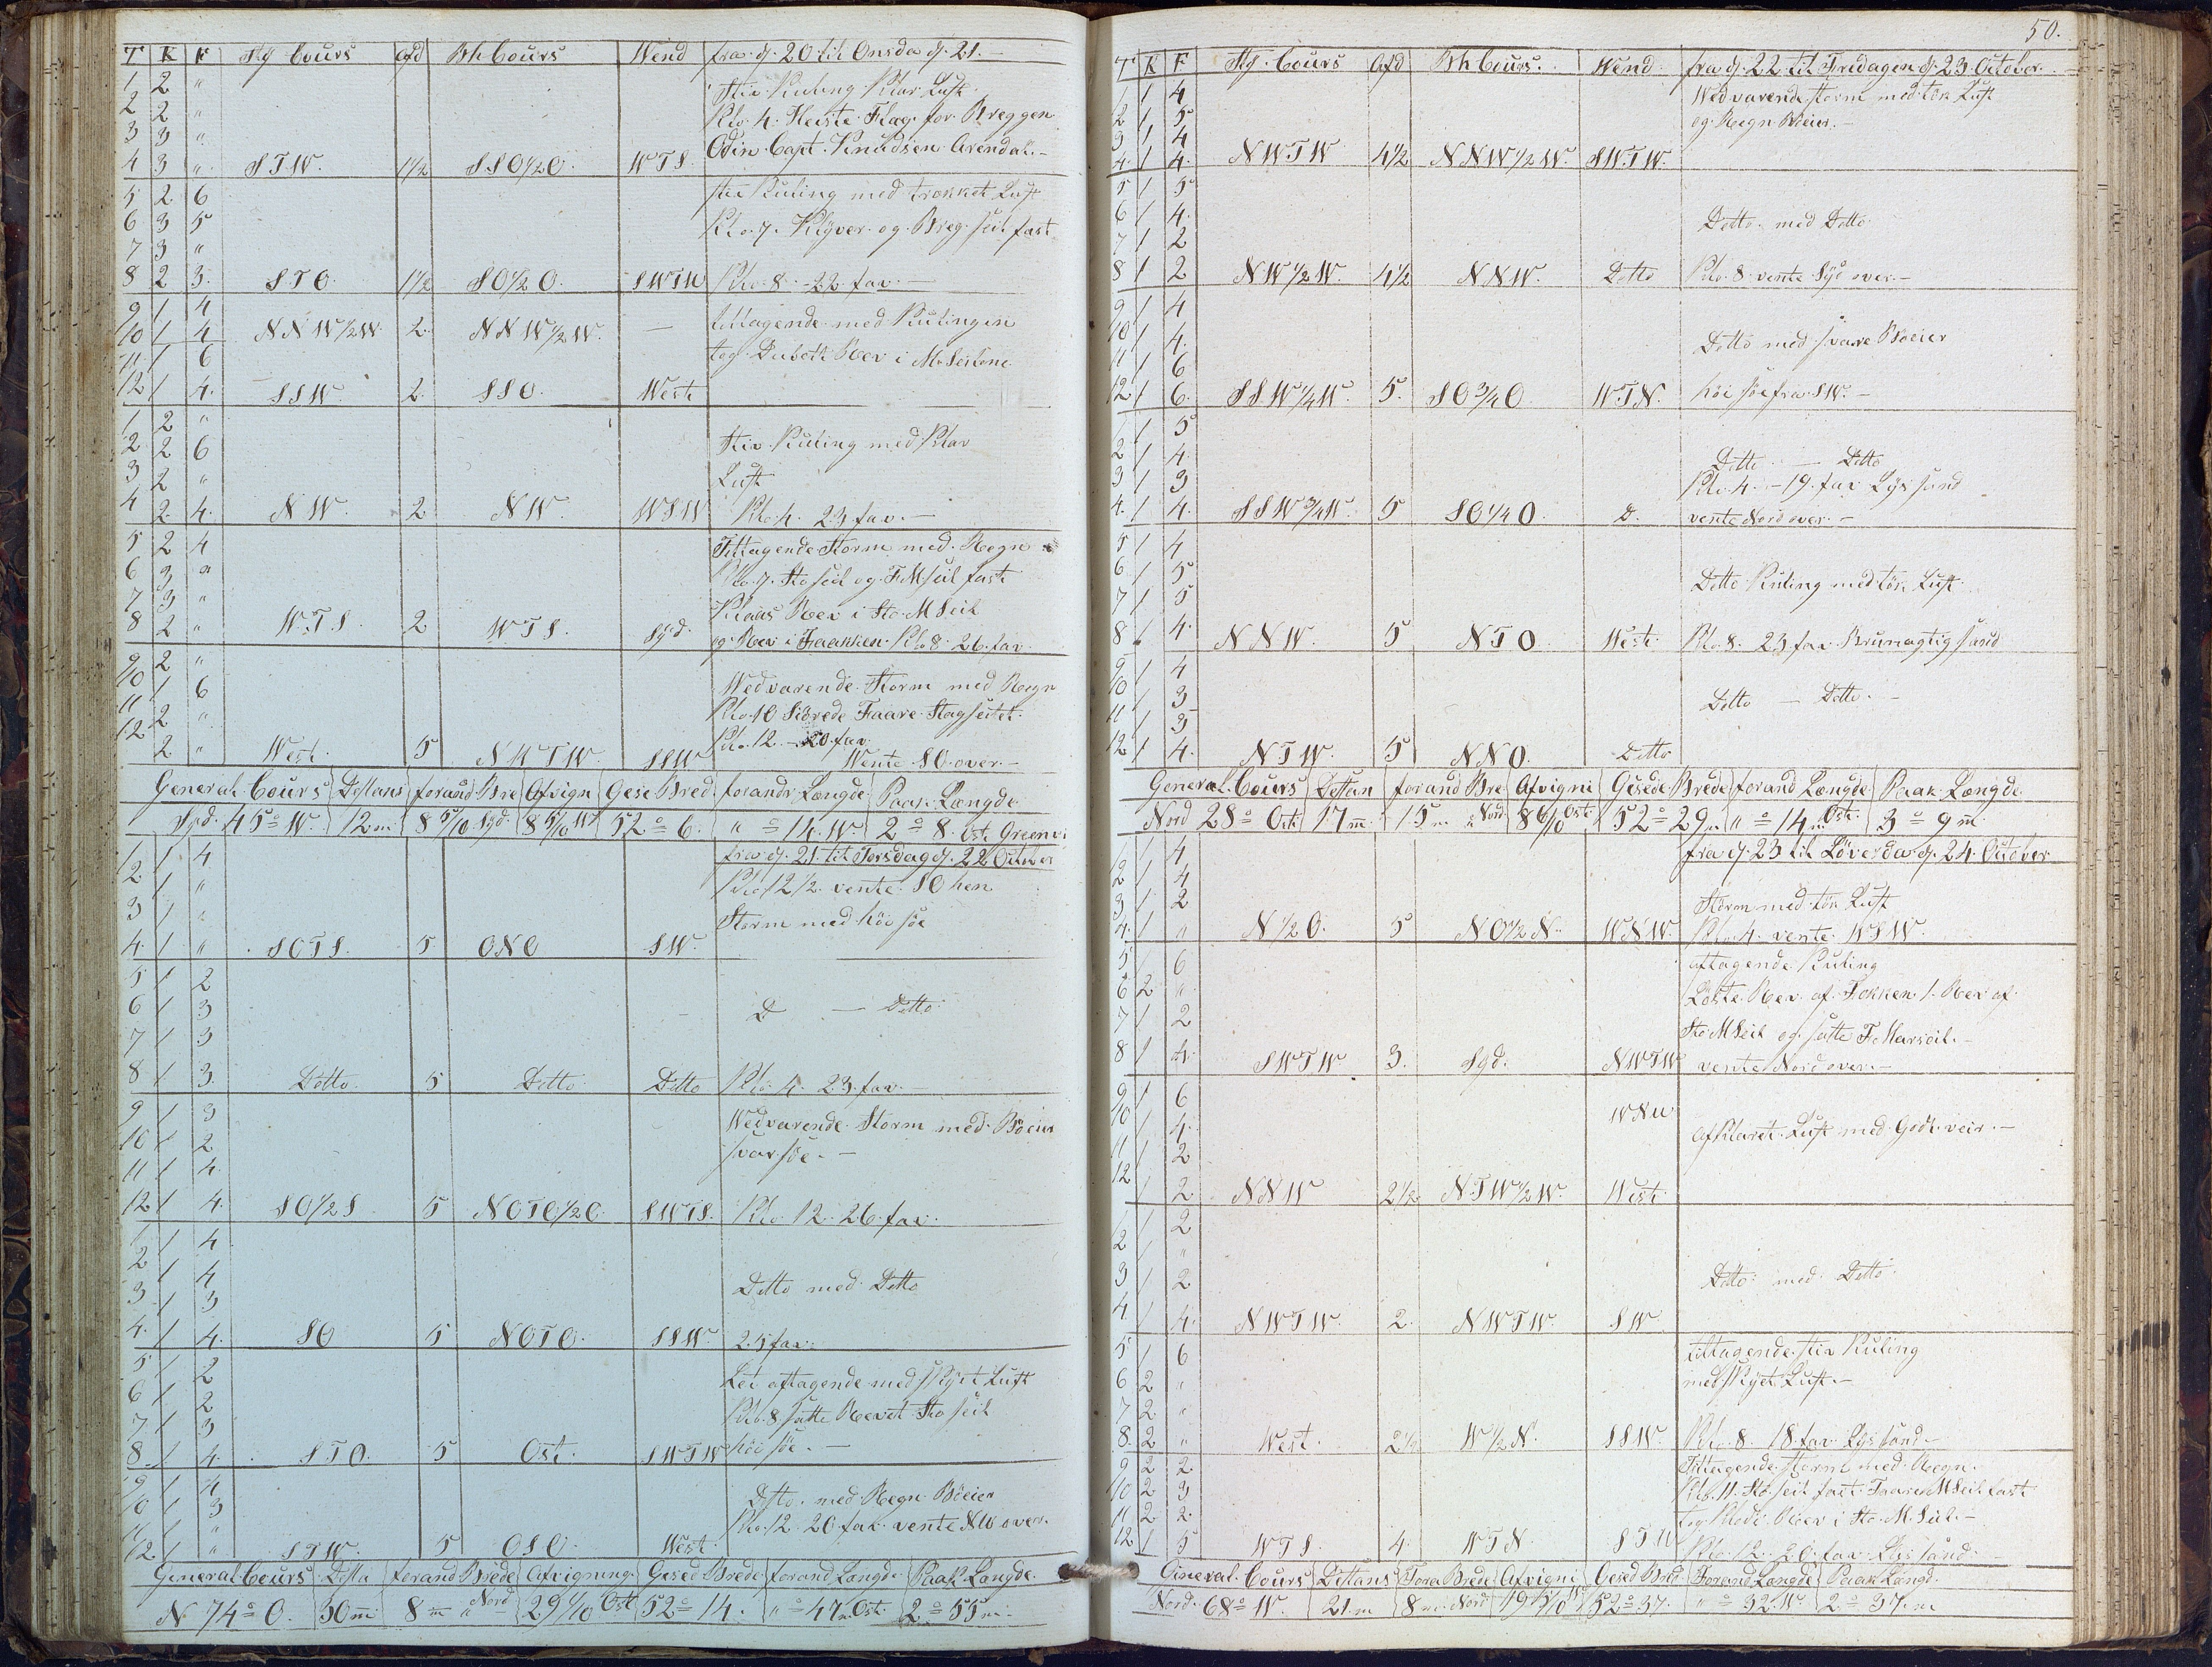 T K F Stg Cours Afd Bh Cours Wend fra d. 20 til Onsda d. 21.
1 2 "
2 2 " Stiv Kuling Klar Luft
3 3 " Klo. 4. Heiste Flag for Breggen
4 3 " STW. 1½ SSO½O. WTS. Odin Capt. Knudsen Arendal.
5 2 6 stiv Kuling med trækket Luft
6 3 5 Klo. 7. Klyver og Breg seil fast
7 3 "
8 2 3. STO. 1½ SO½O. SWTW Klo. 8. 22 fav.
9 1 4
10 1 4 NNW½W. 2. NNW½W. — tiltagende med Kulingen
11 1 6 tog Dubelt Rev i M. Seilene
12 1 4. SSW. 2. SSO. West
1 2 "
2 2 6 Stiv Kuling med Klar
3 2 " Luft
4 2. 4. NW. 2 NW. WSW Klo. 4. 23 fav.
5 2 4 Tiltagende Storm med Regn
6 3 " Klo. 7. Sto seil og F M seil fast
7 3 " Klaas Rev i Sto. M Seil
8 2 " WTS. 2 WTS. Syd. og Rev i Faakken. Klo 8. 26. fav.
9 2 "
10 1 6 Wedvarende Storm med Regn
11 2 " Klo. 10 Siörede Faare Stagseilet.
12 2 " West. 5 NWTW. SSW Klo. 12. 20. fav. Wente SO. over.
General Cours Destans forand Bre Afvign Gese Bred forandr Længde Paak. Længde
Syd. 45° W. 12 m. 8 5/10 Syd. 8 5/10 W 52° 6. " ° 14. W 2° 8. Ost. Greenv:
1 1 4 fra d. 21. til Torsdag d. 22 October
2 1 " Klo. 12½. vente SO hen
3 1 " Storm med höi söe
4. 1 " SOTS. 5 ONO SW.
5 1 2
6 1 3 D — Ditto
7 1 3
8 1 3. Ditto. 5 Ditto Ditto Klo. 4. 23. fav.
9 1 3 Wedvarende Storm med Böeier
10 1 2 svar söe.
11 1 4.
12 1 4. SO½S 5 NOTO½O. SWTS. Klo. 12. 26. fav.
1 1 4
2 1 4 Ditto med Ditto
3 1 3
4. 1 4. SO 5 NOTO. SSW. 25 fav.
5 1 2 Lidt aftagende med Skyet Luft
6 1 2 Klo. 8 satte Revet Sto seil
7 1 3
8 1 4. STO. 5 Ost. SWTW höi söe.
9 1 4
10 1 3 Ditto. med Regn Böeier
11 1 " Klo. 12. 20 fav. vente NW over.
12. 1 " STW. 5 OSO. West.
General Cours Desta forand Brede Afvigning Gesed Brede forand Længde Paak Længde.
N 74° O. 30 m 8 m " Nord 29 1/10 Ost 52° 14. " ° 47 m Ost. 2° 55 m.
50.
T K F Stg. Cours Afd Bh Cours. Wend. fra d. 22 til Fredagen d. 23 October.
1 1 4 Wedvarende Storm med tök Luft
2 1 5 og Regn Böeier.
3 1 4
4. 1 4. NWTW 4½ NNW½W. SWTW.
5 1 5
6 1 4. Ditto. med Ditto.
7 1 2
8 1 2 NW½W. 4½ NNW. Ditto Klo. 8. vente Syd over.
9 1 4
10 1 4. Ditto med svare Böeier
11 1 6
12 1 6. SSW¼W. 5. SO¾O WTN. höi söe fra SW.
1 1 5
2 1 4. Ditto — Ditto
3 1 3 Klo. 4. 19. fav Lys sand
4. 1 4. SSW¾W. 5 SO¼O D. vente Nord over.
5 1 4
6 1 5 Ditto Kuling med tök Luft
7 1 5
8 1 4. NNW. 5 NTO West Klo. 8. 23 fav. Brunagtig sand
9 1 4
10 1 3 Ditto — Ditto.
11 1 3
12 1 4. NTW. 5 NNO. Ditto
General Cours Destan forand Bre Afvigni Gesede Brede forand Længde Paak Længde
Nord 28° Ost 17 m. 15 m. Nord 8 6/10 Ost. 52° 29 m " ° 14 m Ost. 3° 9 m
1 1 4 fra d. 23 til Löverda d. 24. October
2 1 4
3 1 2 Storm med tök Luft
4. 1 " N½O. 5 NO½N. WNW. Klo. 4. vente WSW.
5 1 6 aftagende Kuling
6 2 " Löste Rev af Fokken 1. Rev af
7 1 2 Sto M Seil og satte F. Marseil.
8 1 4. SWTW 3. Syd. NWTW vente Nord over.
9 1 6 WNW
10 1 4. Afklaret Luft med Godt veir.
11 1 2
12 1 2 NNW 2½ NTW½W. West
1 1 2
2 1 "
3 1 2 Ditto med Ditto
4 1 4. NWTW. 2. NWTW. SW
5 1 6 tiltagende stiv Kuling
6 2 " med Skyet Luft.
7 2 "
8. 2 " West. 2½ W½N. SSW. Klo. 8. 18. fav. Lys sand
9 2 2. Tiltagende Storm med Regn.
10 2 3 Klo. 11. Sto seil fast. Faare M Seil fast
11 2 2 tog Rev i Sto. M. Seil.
12. 1 5 WTS. 4. WTN. STW Klo. 12. 20. fav. Lys sand.
General Cours Destans Fora Brede Afvigni Gesed Bred Forand Længde Paak Længd.
Nord. 68° W. 21. m 8 m. Nord 19 5/10 W 52° 37. " ° 32. W. 2° 37. m